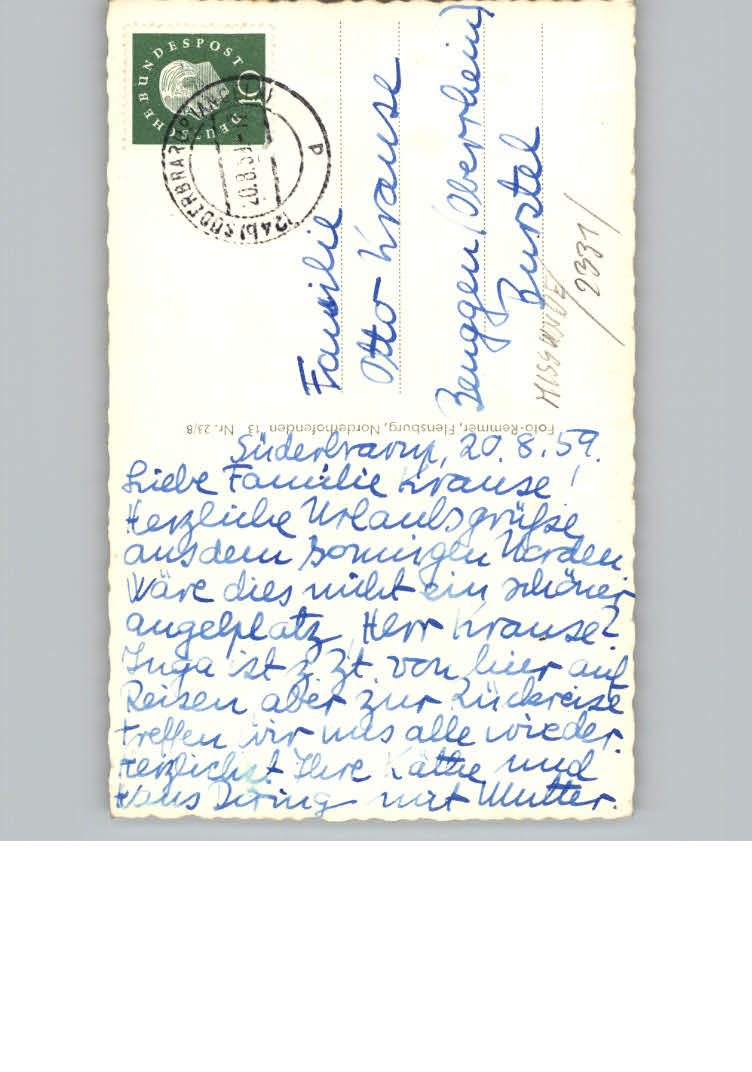 DEUTSCHE BUNDESPOST
10
(24b) SÜDERBRARUP
20.8.59
a
Familie
Otto Krause
Beuggen (Oberrhein)
Burstel
MISSUNDE/
2331/
Foto-Remmer, Flensburg, Norderhofenden 13 Nr. 23/8
Süderbrarup, 20.8.59.
Liebe Familie Krause!
Herzliche Urlaubsgrüße
aus dem sonnigen Norden
Wäre dies nicht ein schöner
Angelplatz, Herr Krause?
Inga ist z. Zt. von hier auf
Reisen aber zur Rückreise
treffen wir uns alle wieder.
Herzlichst Ihre Käthe und
Hans Düring mit Mutter.